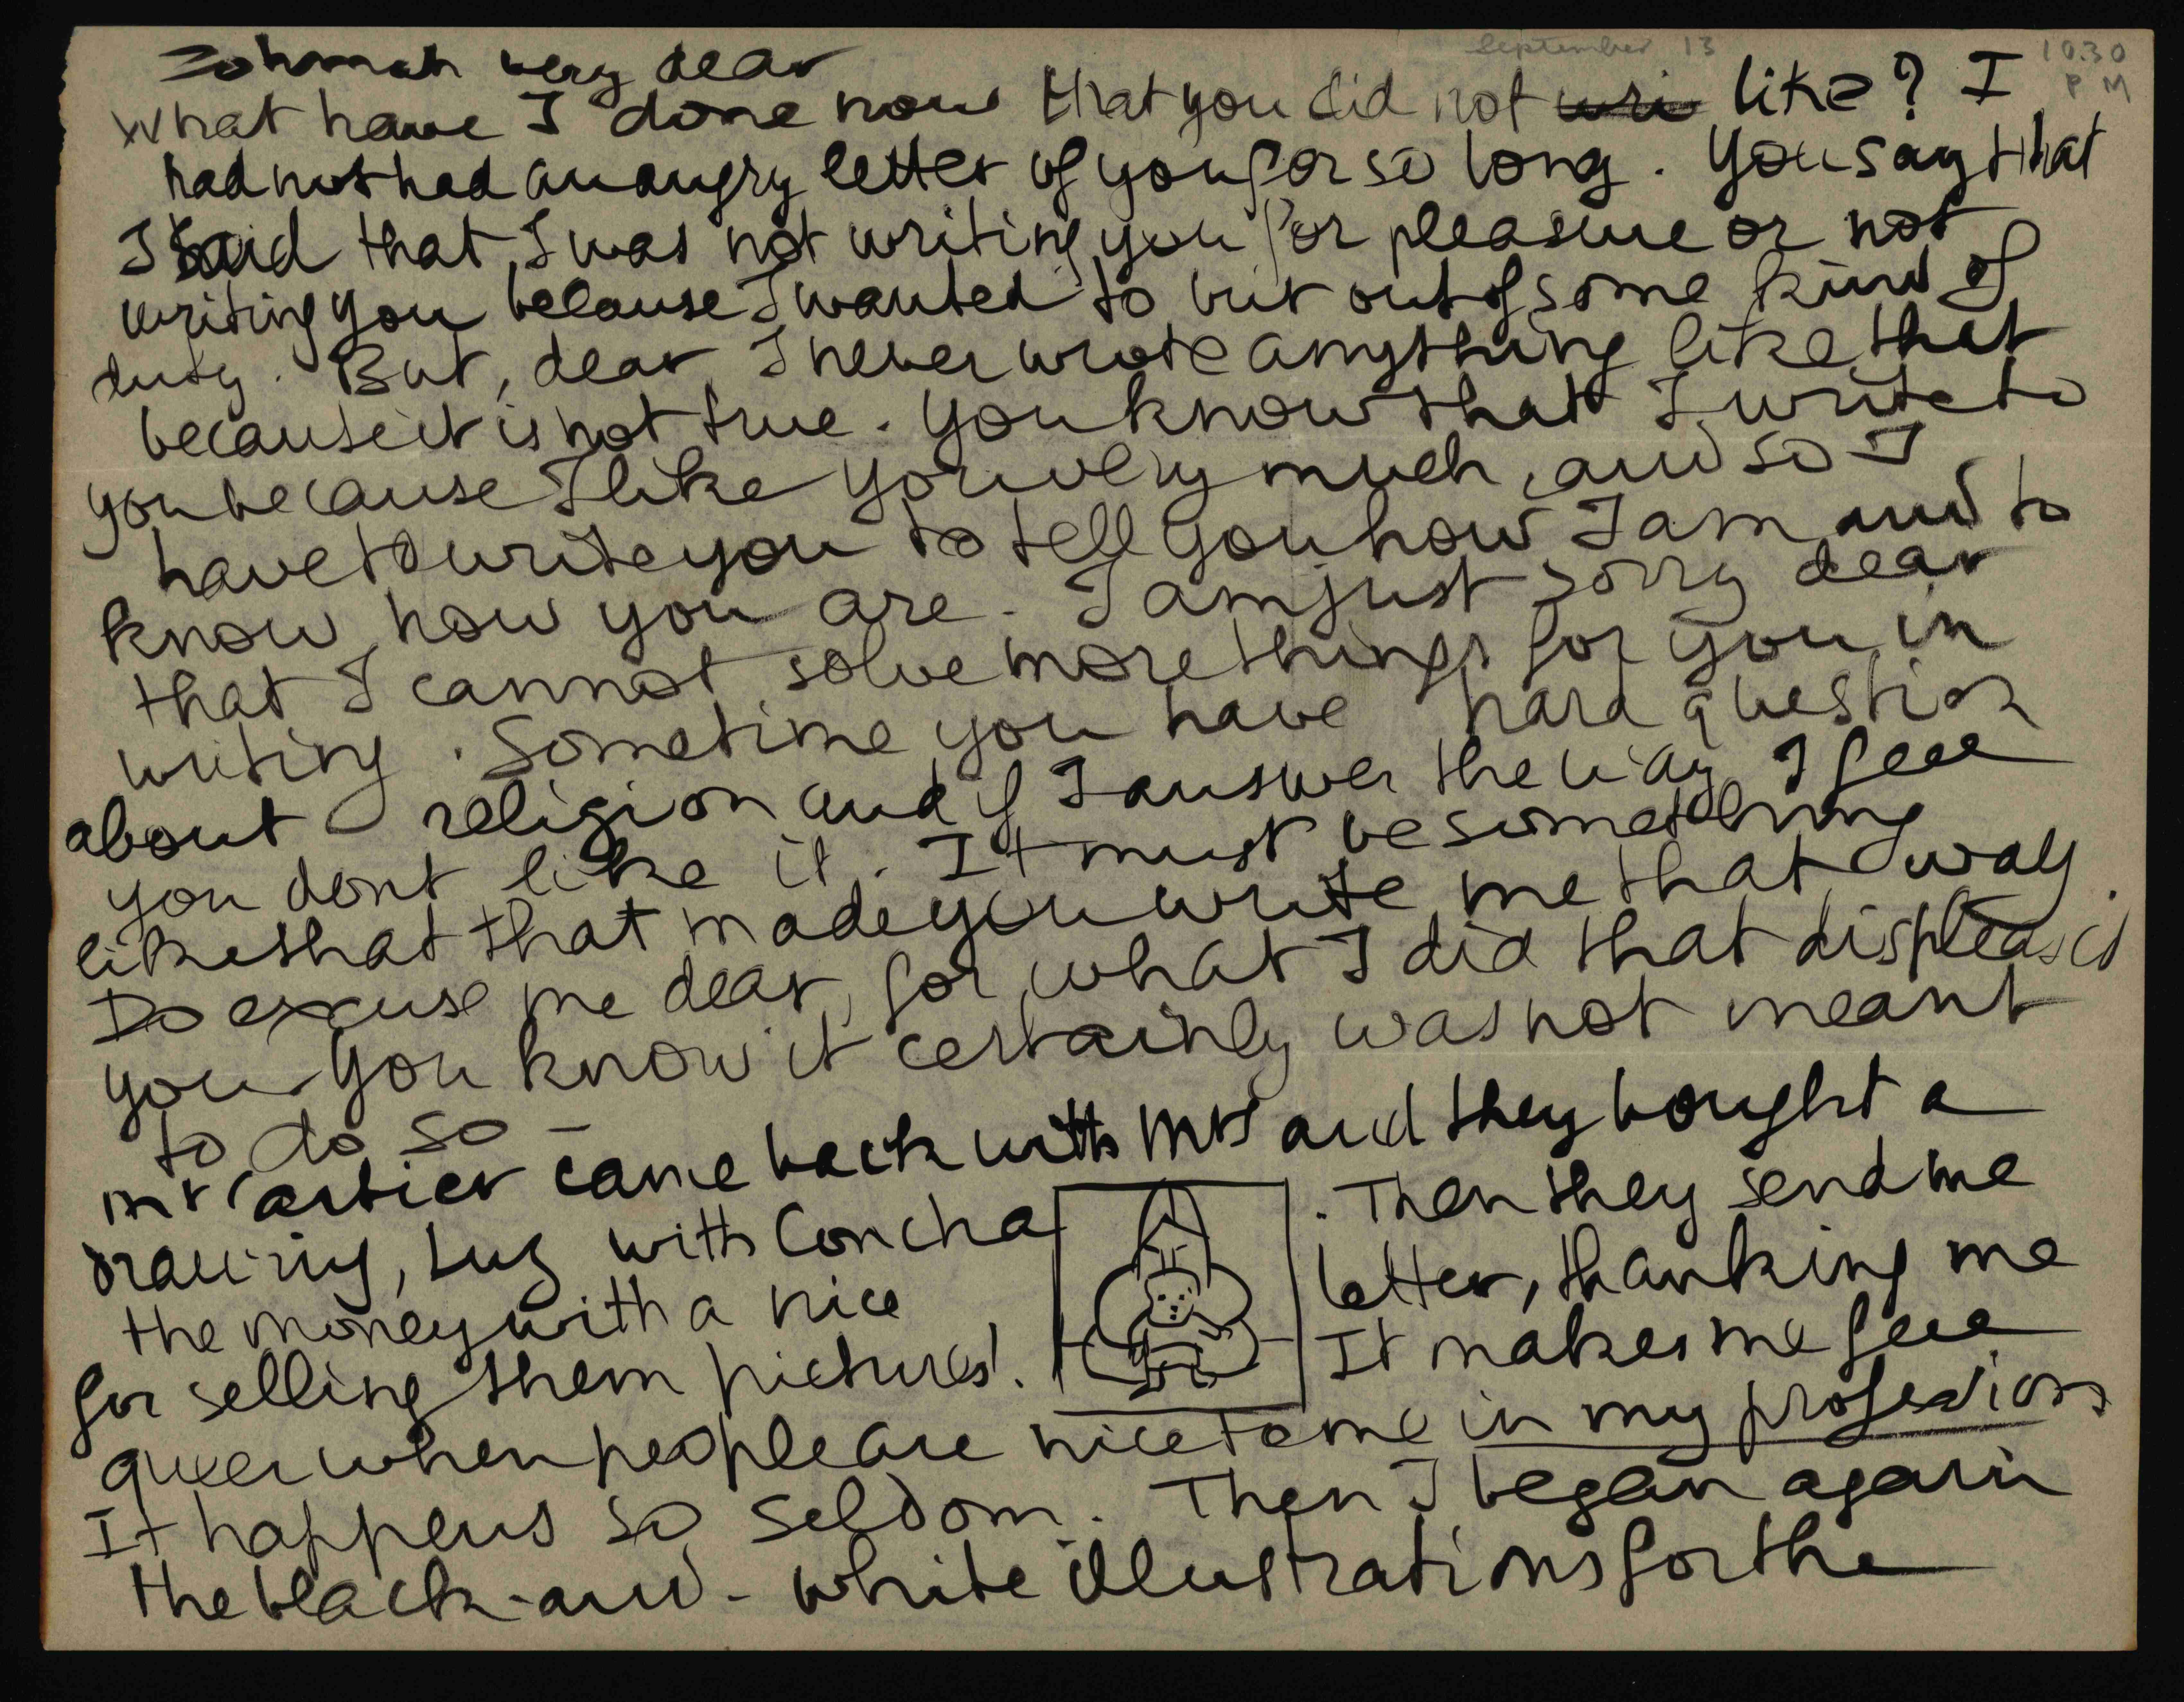 September 13 10.30
P M
Zohmah very dear
What have I done now that you did not wri like? I
had not had an angry letter of you for so long. You say that
I said that I was not writing you for pleasure or not
writing you because I wanted to but out of some kind of
duty. But, dear, I never wrote anything like that
because it is not true. You know that I write to
you because I like you very much, and so I
have to write you to tell you how I am and to
know how you are. I am just sorry dear
that I cannot solve more things for you in
writing. Sometime you have hard question
about religion and if I answer the way I feel
you dont like it. It must be something
like that that made you write me that way.
Do excuse me dear, for what I did that displeased
you. You know it certainly was not meant
to do so –
Mr Cartier came back with Mrs and they bought a
drawing, Luz with Concha . Then they send me
the money with a nice letter, thanking me
for selling them pictures! It makes me feel
queer when people are nice to me in my profession
It happens so seldom. Then I began again
the black-and-white illustrations for the